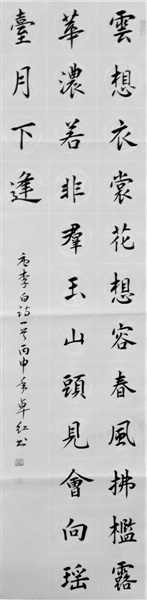 雲想衣裳花想容春風拂檻露
華濃若非群玉山頭見會向瑶
臺月下逢
唐李白诗一首丙申年卓红书